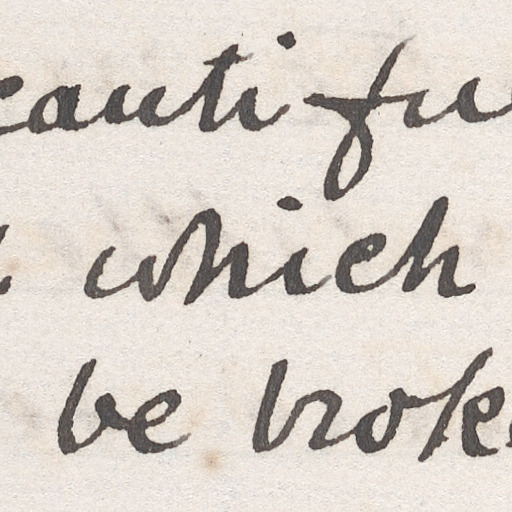 eautifu
which
be brok